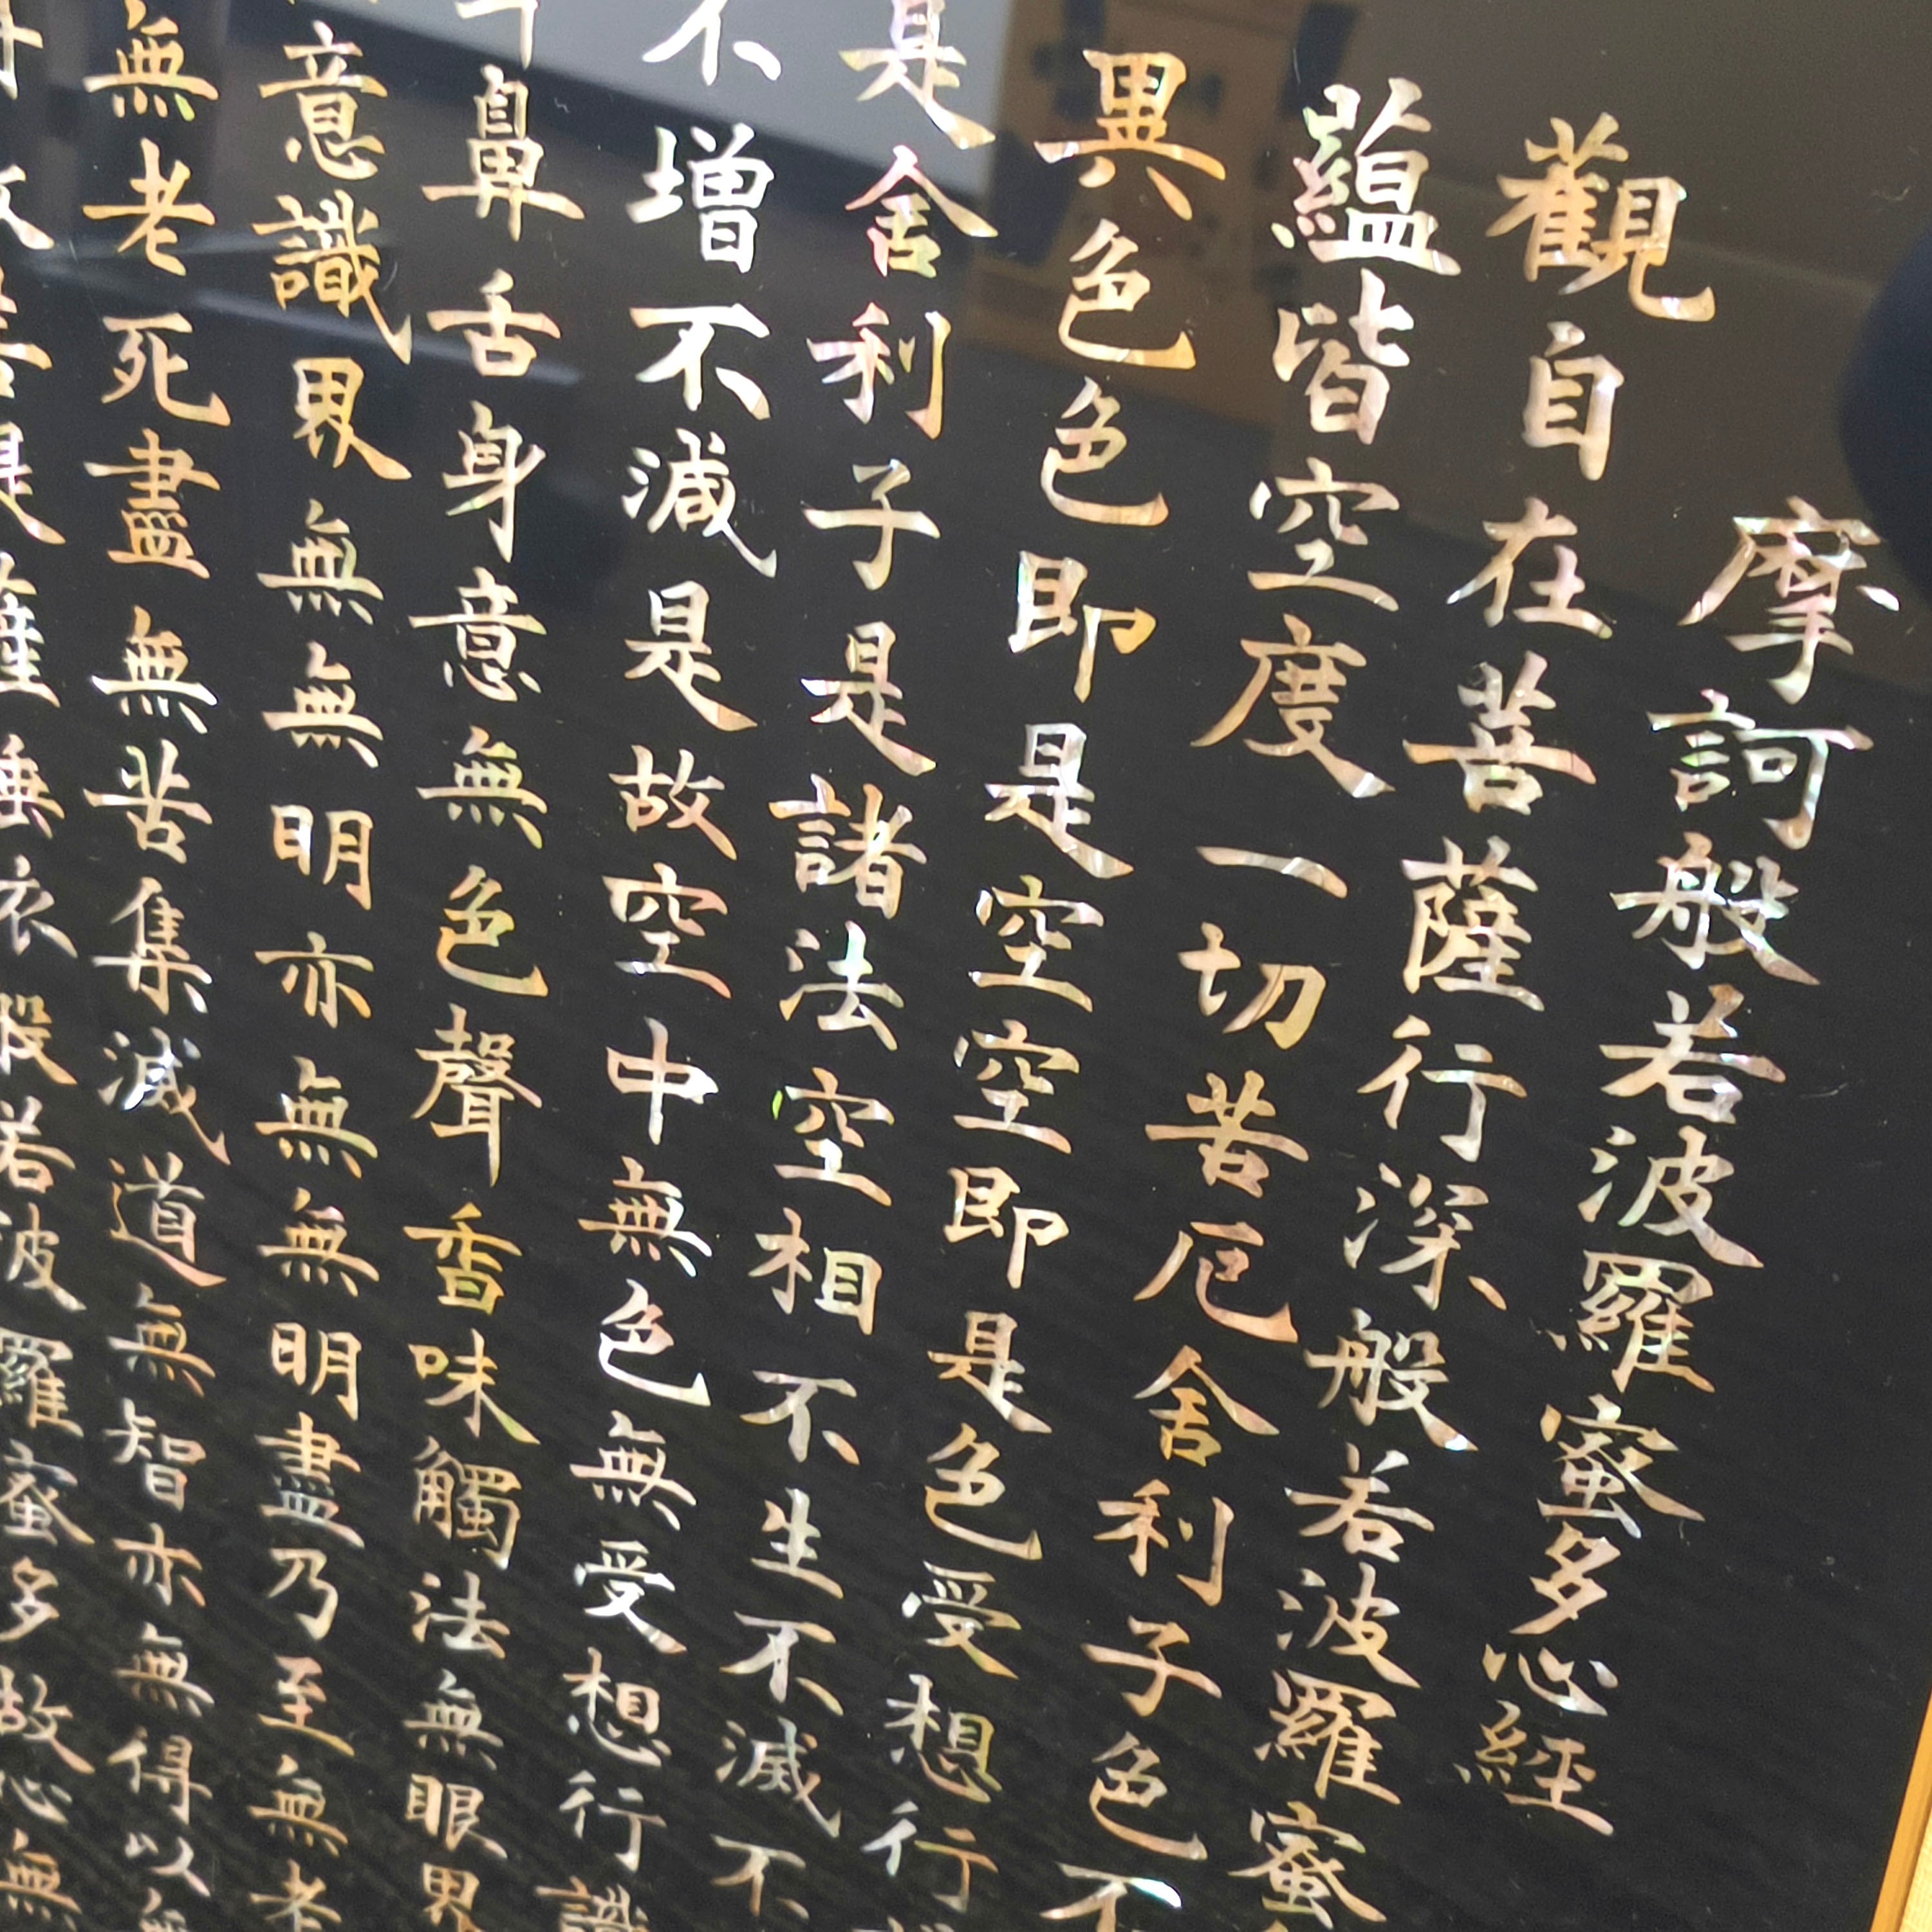 摩訶般若波羅蜜多心經
觀自在菩薩行深般若波羅蜜
蘊皆空度一切苦厄舍利子色不
異色色即是空空即是色受想行
是舍利子是諸法空相不生不滅不
不增不減是故空中無色無受想行識
鼻舌身意無色聲香味觸法無眼界
意識界無無明亦無無明盡乃至無老
無老死盡無苦集滅道無智亦無得以無
故菩提薩埵依般若波羅蜜多故心無